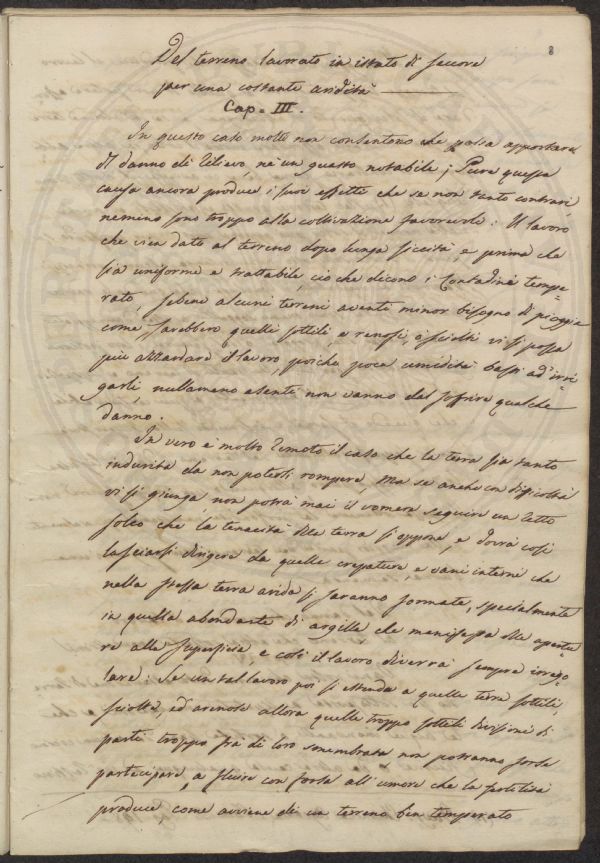 8
Del terreno lavorato in istato di seccore
per una costante aridità
Cap. III.
In questo caso molti non consentono che possa apportare
di danno di rilievo, nè un guasto notabile; Pure questa
causa ancora produce i suoi effetti che se non tanto contrari,
nemeno sono troppo alla coltivazione favorevole: Il lavoro
che vien dato al terreno dopo lunga siccità, e prima che
sia uniforme e trattabile, ciò che dicono i Contadini tempe=
rato, sebene alcuni terreni avente minor bisogno di pioggia
come sarebbero quelli sottili, e renosi, o sciolti vi si possa
più azzardare il lavoro, poichè poca umidità basti ad irri
garli, nullameno esenti non vanno del soffrire qualche
danno.
In vero è molto remoto il caso che la terra sia tanto
indurita da non potersi rompere, Ma se anche con difficoltà
vi si giunga, non potrà mai il vomere seguire un retto
solco che la tenacità della terra si oppone, e dovrà così
lasciarsi dirigere da quelle crepature, e vani interni che
nella stessa terra arida si saranno formate, specialmente
in quella abondante di argilla che manifesta delle apertu=
re alla superficie e così il lavoro diverrà sempre irrego=
lare: Se un tal lavoro poi si estenda a quelle terre sottili,
sciolte, ed arenose allora quelle troppo sottili divisioni di
parte troppo frà di loro smembrate non potranno forse
partecipare, e fluire con forza all'umore che la fertilità
produce, come avviene di un terreno ben temperato